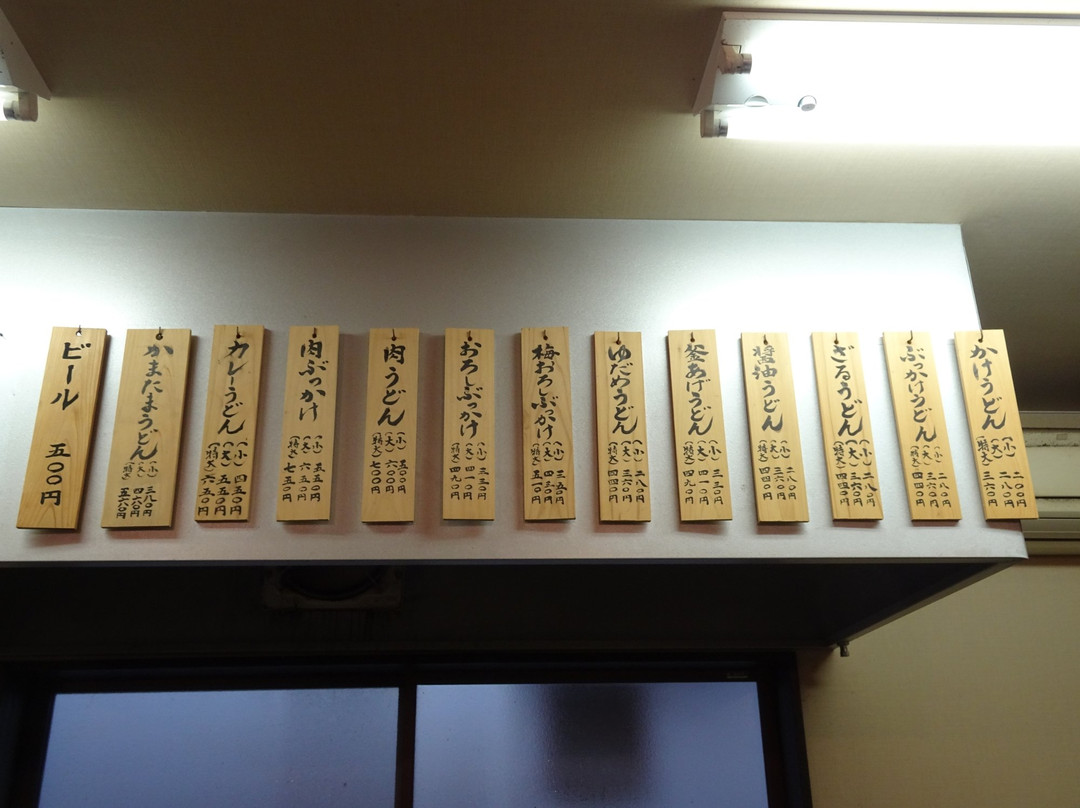 かけうどん
(小) 二〇〇円
(大) 二八〇円
(特大) 三六〇円
ぶっかけうどん
(小) 二八〇円
(大) 三六〇円
(特大) 四四〇円
ざるうどん
(小) 二八〇円
(大) 三六〇円
(特大) 四四〇円
醤油うどん
(小) 二八〇円
(大) 三六〇円
(特大) 四四〇円
釜あげうどん
(小) 三三〇円
(大) 四一〇円
(特大) 四九〇円
ゆだめうどん
(小) 二八〇円
(大) 三六〇円
(特大) 四四〇円
梅おろしぶっかけ
(小) 三五〇円
(大) 四三〇円
(特大) 五一〇円
おろしぶっかけ
(小) 三三〇円
(大) 四一〇円
(特大) 四九〇円
肉うどん
(小) 五〇〇円
(大) 六〇〇円
(特大) 七〇〇円
肉ぶっかけ
(小) 五五〇円
(大) 六五〇円
(特大) 七五〇円
カレーうどん
(小) 四五〇円
(大) 五五〇円
(特大) 六五〇円
かまたまうどん
(小) 三八〇円
(大) 四六〇円
(特大) 五六〇円
ビール 五〇〇円